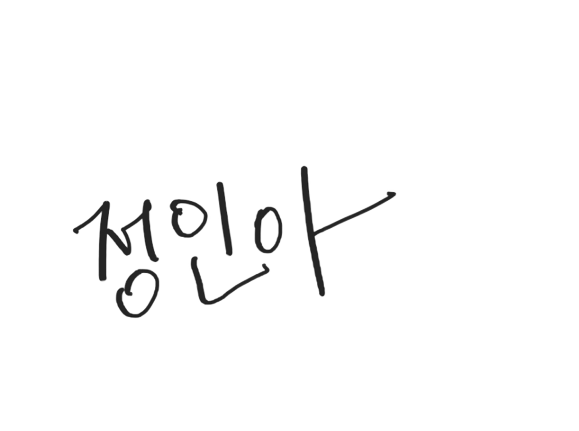 정인아